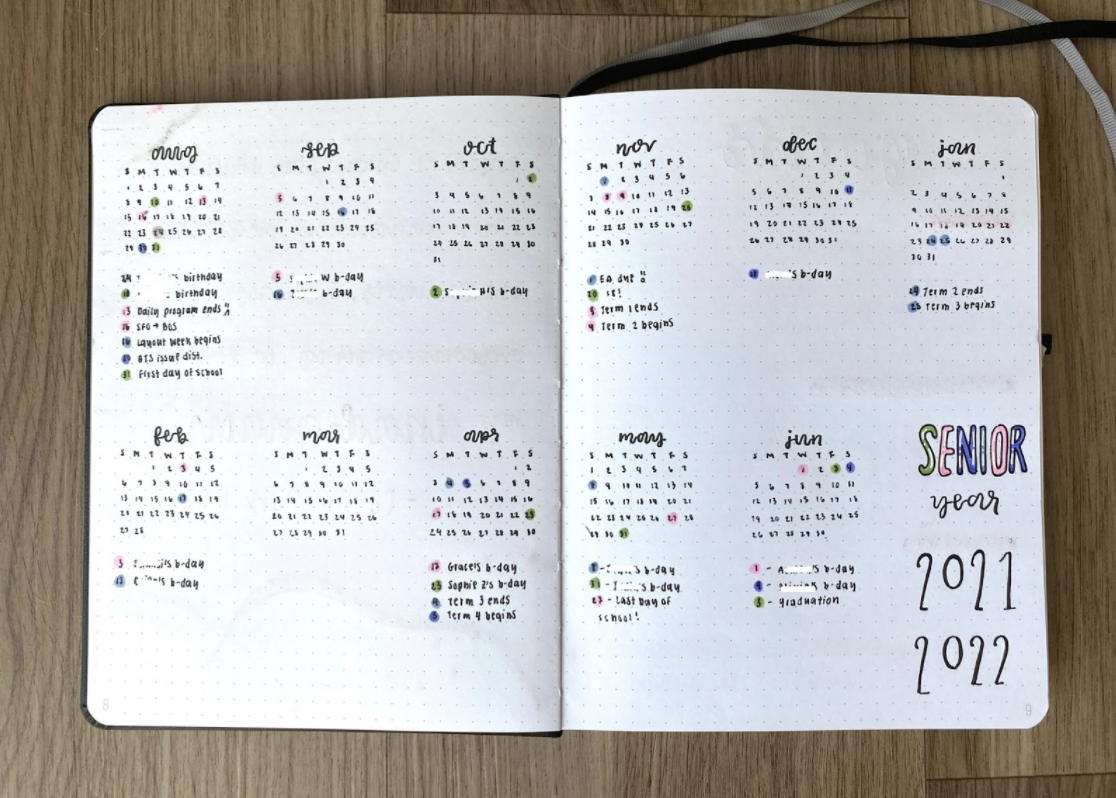 aug
S M T W T F S
1 2 3 4 5 6 7
8 9 10 11 12 13 14
15 16 17 18 19 20 21
22 23 24 25 26 27 28
29 30 31
24 birthday
birthday
13 Daily program ends
16 SFO → BOS
Layout week begins
BTS issue dist.
31 First day of school
sep
S M T W T F S
1 2 3 4
5 6 7 8 9 10 11
12 13 14 15 16 17 18
19 20 21 22 23 24 25
26 27 28 29 30
5 S W b-day
16 b-day
oct
S M T W T F S
1 2
3 4 5 6 7 8 9
10 11 12 13 14 15 16
17 18 19 20 21 22 23
24 25 26 27 28 29 30
31
2 S H's b-day
nov
S M T W T F S
1 2 3 4 5 6
7 8 9 10 11 12 13
14 15 16 17 18 19 20
21 22 23 24 25 26 27
28 29 30
1 EA due !!
20 18!
8 Term 1 ends
9 Term 2 begins
dec
S M T W T F S
1 2 3 4
5 6 7 8 9 10 11
12 13 14 15 16 17 18
19 20 21 22 23 24 25
26 27 28 29 30 31
11 's b-day
jan
S M T W T F S
1
2 3 4 5 6 7 8
9 10 11 12 13 14 15
16 17 18 19 20 21 22
23 24 25 26 27 28 29
30 31
24 Term 2 ends
25 Term 3 begins
feb
S M T W T F S
1 2 3 4 5
6 7 8 9 10 11 12
13 14 15 16 17 18 19
20 21 22 23 24 25 26
27 28
3 's b-day
17 's b-day
mar
S M T W T F S
1 2 3 4 5
6 7 8 9 10 11 12
13 14 15 16 17 18 19
20 21 22 23 24 25 26
27 28 29 30 31
apr
S M T W T F S
1 2
3 4 5 6 7 8 9
10 11 12 13 14 15 16
17 18 19 20 21 22 23
24 25 26 27 28 29 30
17 Grace's b-day
23 Sophie Z's b-day
4 Term 3 ends
5 Term 4 begins
may
S M T W T F S
1 2 3 4 5 6 7
8 9 10 11 12 13 14
15 16 17 18 19 20 21
22 23 24 25 26 27 28
29 30 31
8 - 's b-day
31 - 's b-day
27 - Last Day of
school!
jun
S M T W T F S
1 2 3 4
5 6 7 8 9 10 11
12 13 14 15 16 17 18
19 20 21 22 23 24 25
26 27 28 29 30
1 - A 's b-day
4 - b-day
3 - graduation
SENIOR
year
2021
2022
8
9